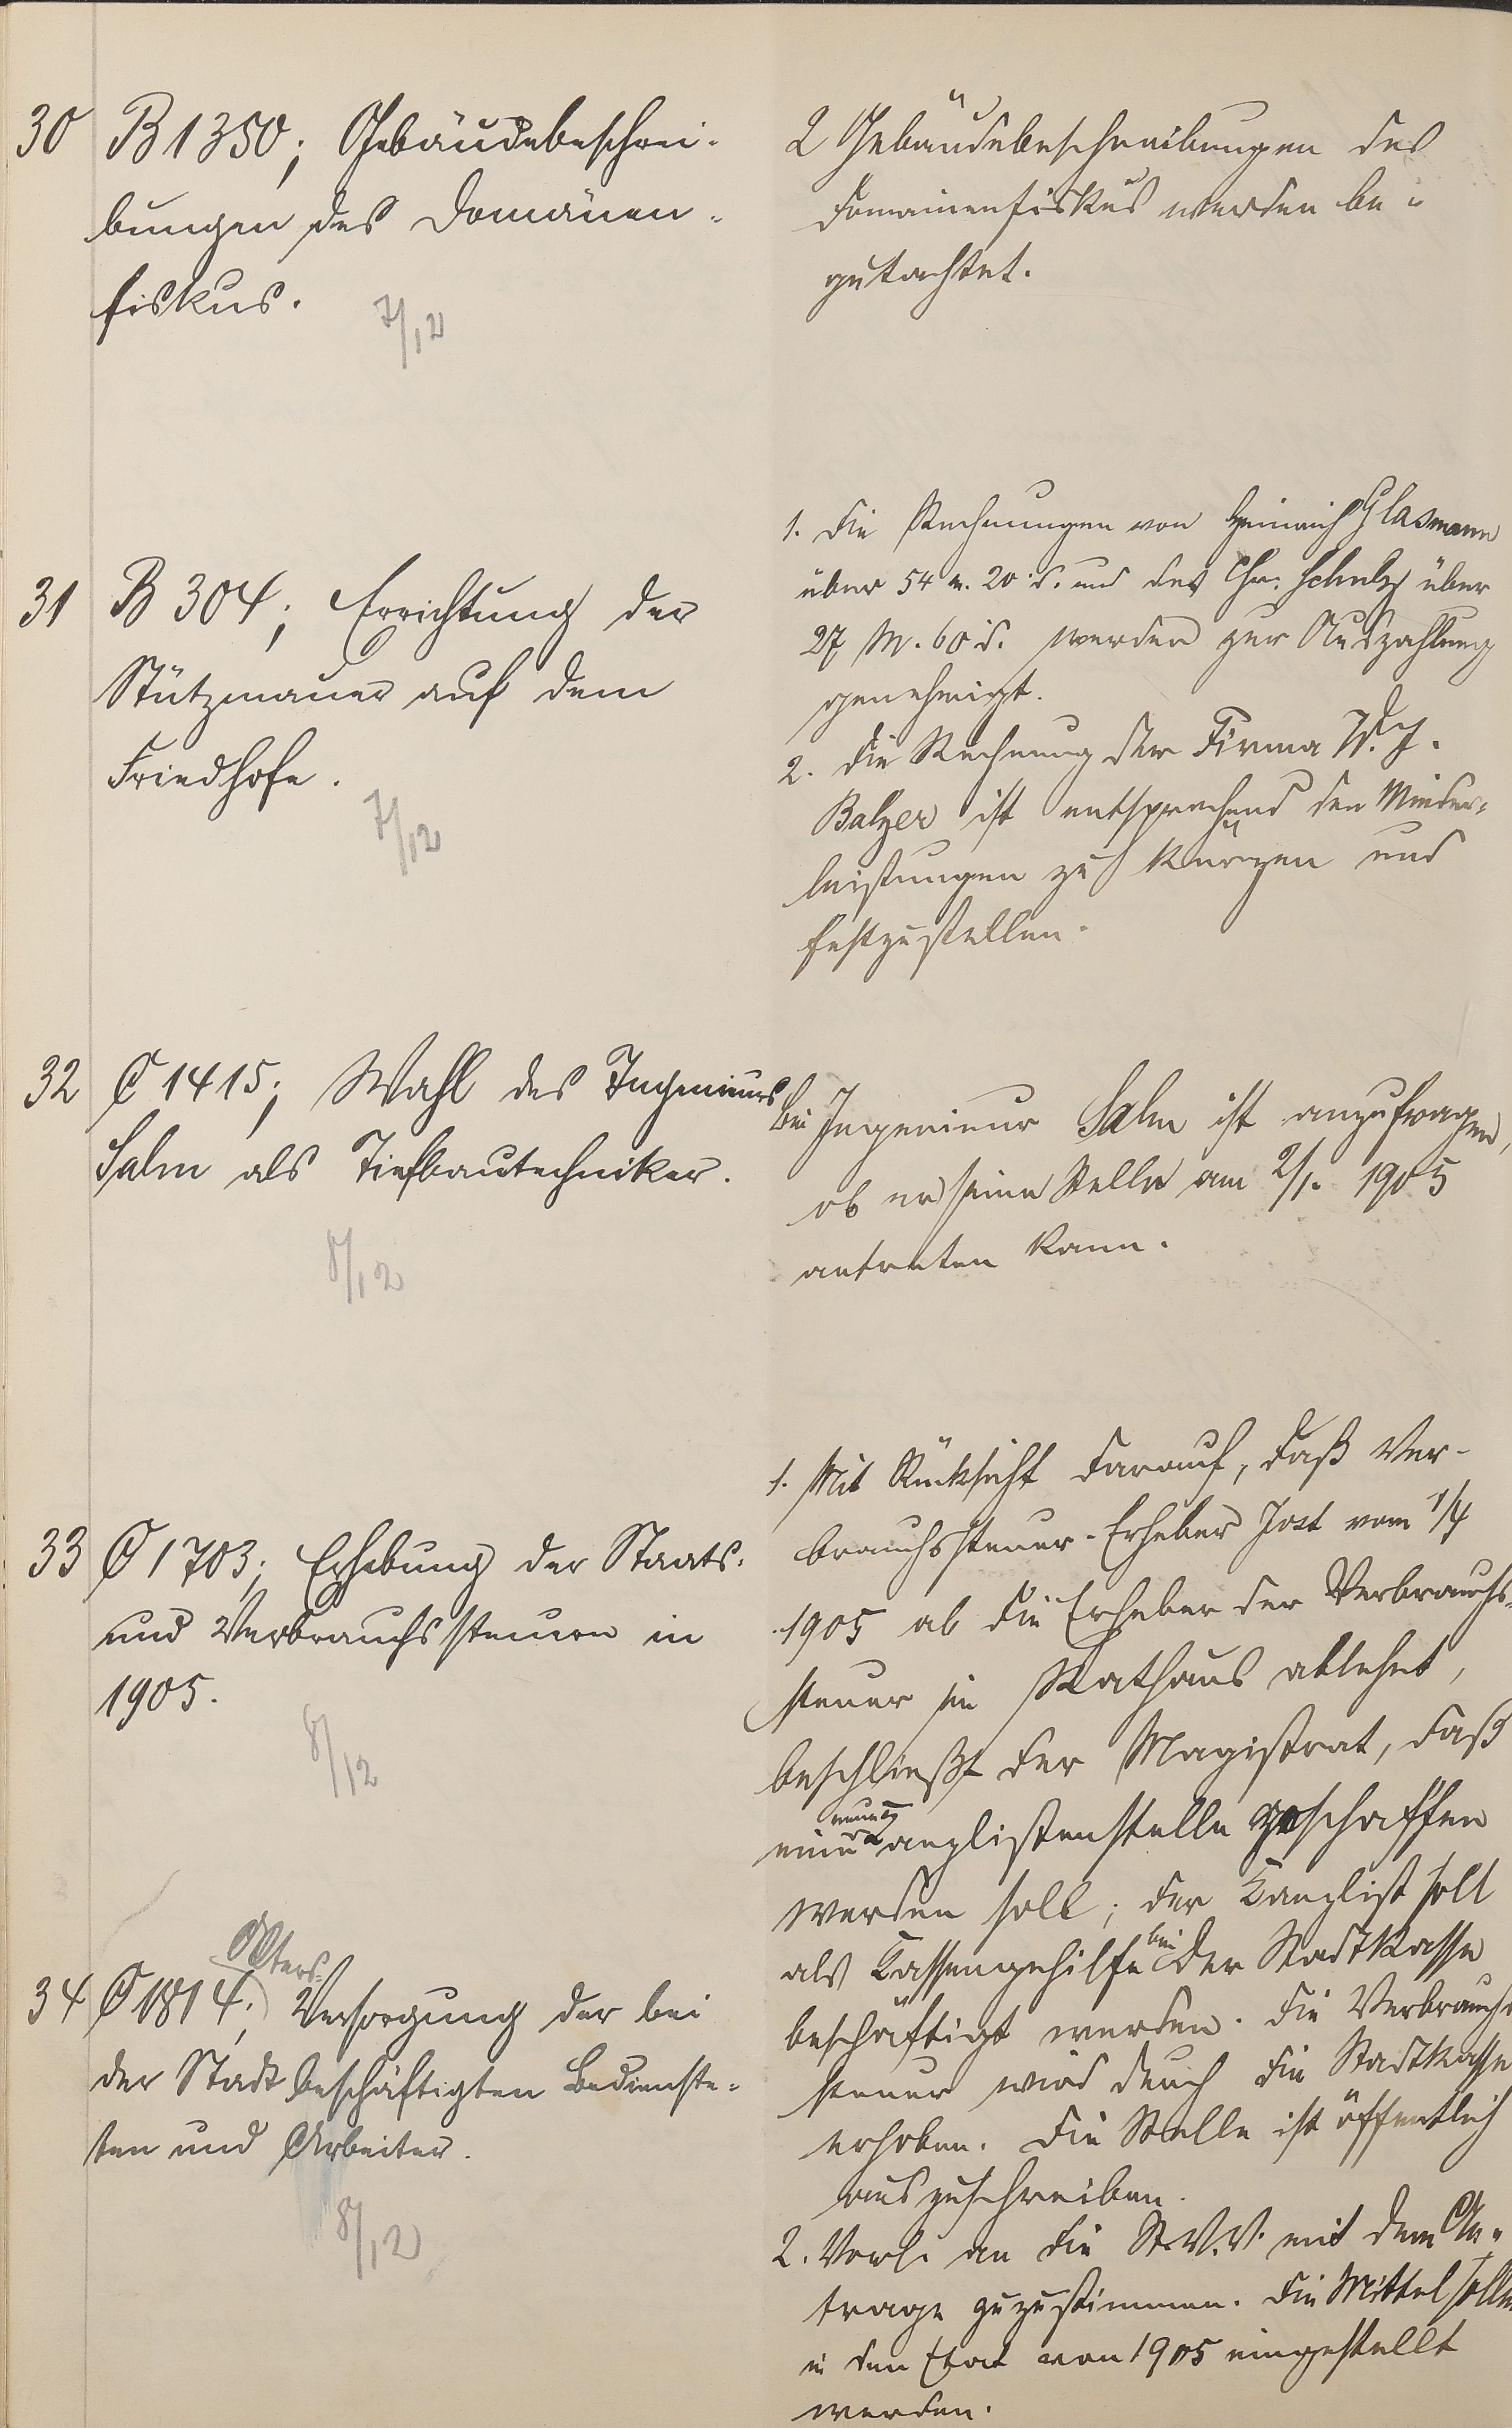 30 B 1350; Gebäudebeschrei-
bungen des Domänen-
fiskus.
7/12
2 Gebäudebeschreibungen des
Domainenfiskus werden be-
gutachtet.
31 B 304; Errichtung der
Stützmauer auf dem
Friedhofe.
7/12
1. Die Rechnungen von Heinrich Glasmann
über 54 M. 20 d. und des Chr. Schulz über
27 M. 60 d. werden zur Auszahlung
genehmigt.
2. Die Rechnung der Firma W. J.
Balzer ist entsprechend den Minder-
leistungen zu kürzen und
festzustellen.
32 C 1415; Wahl des Ingenieurs
Salm als Tiefbautechniker.
8/12
Bei Ingenieur Salm ist anzufragen,
ob er seine Stelle am 2/1. 1905
antreten kann.
33 C 1703; Erhebung der Staats-
und Verbrauchssteuern in
1905.
8/12
1. Mit Rücksicht darauf, daß Ver-
brauchssteuer-Erheber Jost vom 1/4
1905 ab die Erheber der Verbrauchs-
steuer im Rathaus ablehnt,
beschließt der Magistrat, daß
eine neue Kanzlistenstelle geschaffen
werden soll; der Kanzlist soll
als Kassengehilfe bei der Stadtkasse
beschäftigt werden. Die Verbrauchs-
steuer wird durch die Stadtkasse
erhoben. Die Stelle ist öffentlich
auszuschreiben.
2. Vorl. an die St.V.V. mit dem An-
trage zuzustimmen. Die Mittel sollen
in den Etat von 1905 eingestellt
werden.
34 C 1814; Alters-Versorgung der bei
der Stadt beschäftigten Bedienste-
ten und Arbeiter.
8/12